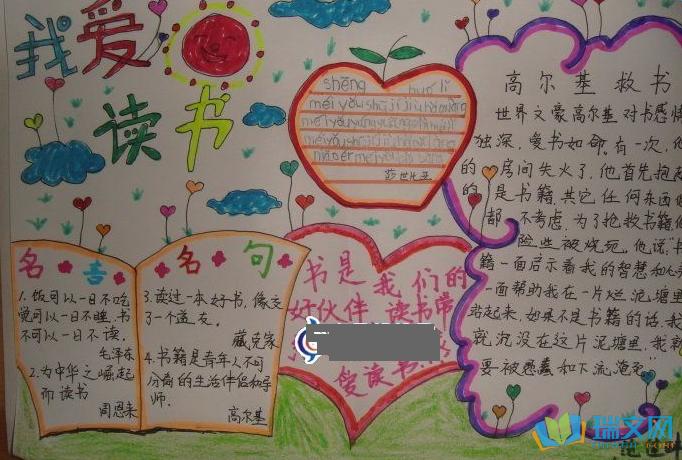 我爱
读书
shēng huó lǐ
莎世比亚
名言名句
1. 饭可以一日不吃
觉可以一日不睡, 书
不可以一日不读。
毛泽东
2. 为中华之崛起
而读书
周恩来
3. 读过一本好书, 像交
了一个益友。
臧克家
4. 书籍是青年人不可
分离的生活伴侣和导
师。
高尔基
书是我们的
好伙伴 读书带
爱读书
高尔基救书
世界文豪高尔基对书感情
独深, 爱书如命, 有一次, 他
的房间失火了, 他首先抱起
的是书籍, 其它任何东西他
都不考虑, 为了抢救书籍, 他
险些被烧死。他说:“书
籍一面启示着我的智慧和心灵
一面帮助我在一片烂泥塘里
站起来, 如果不是书籍的话, 我
就沉没在这片泥塘里, 我就
要被愚蠢和下流淹死”
瑞文网